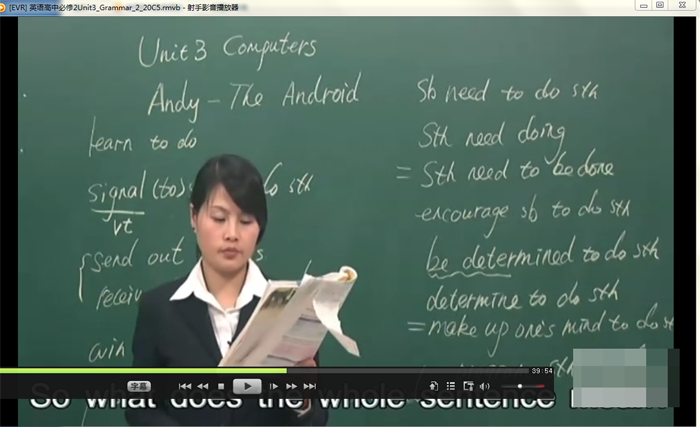 [EVR] 英语高中必修2Unit3_Grammar_2_20C5.rmvb - 射手影音播放器
Unit 3 Computers
Andy – The Android
learn to do
signal (to) do sth
vt
send out
win
Sb need to do sth
Sth need doing
= Sth need to be done
encourage sb to do sth
be determined to do sth
determine to do sth
= make up one's mind to do
39:54
字幕
So what does the whole sentence